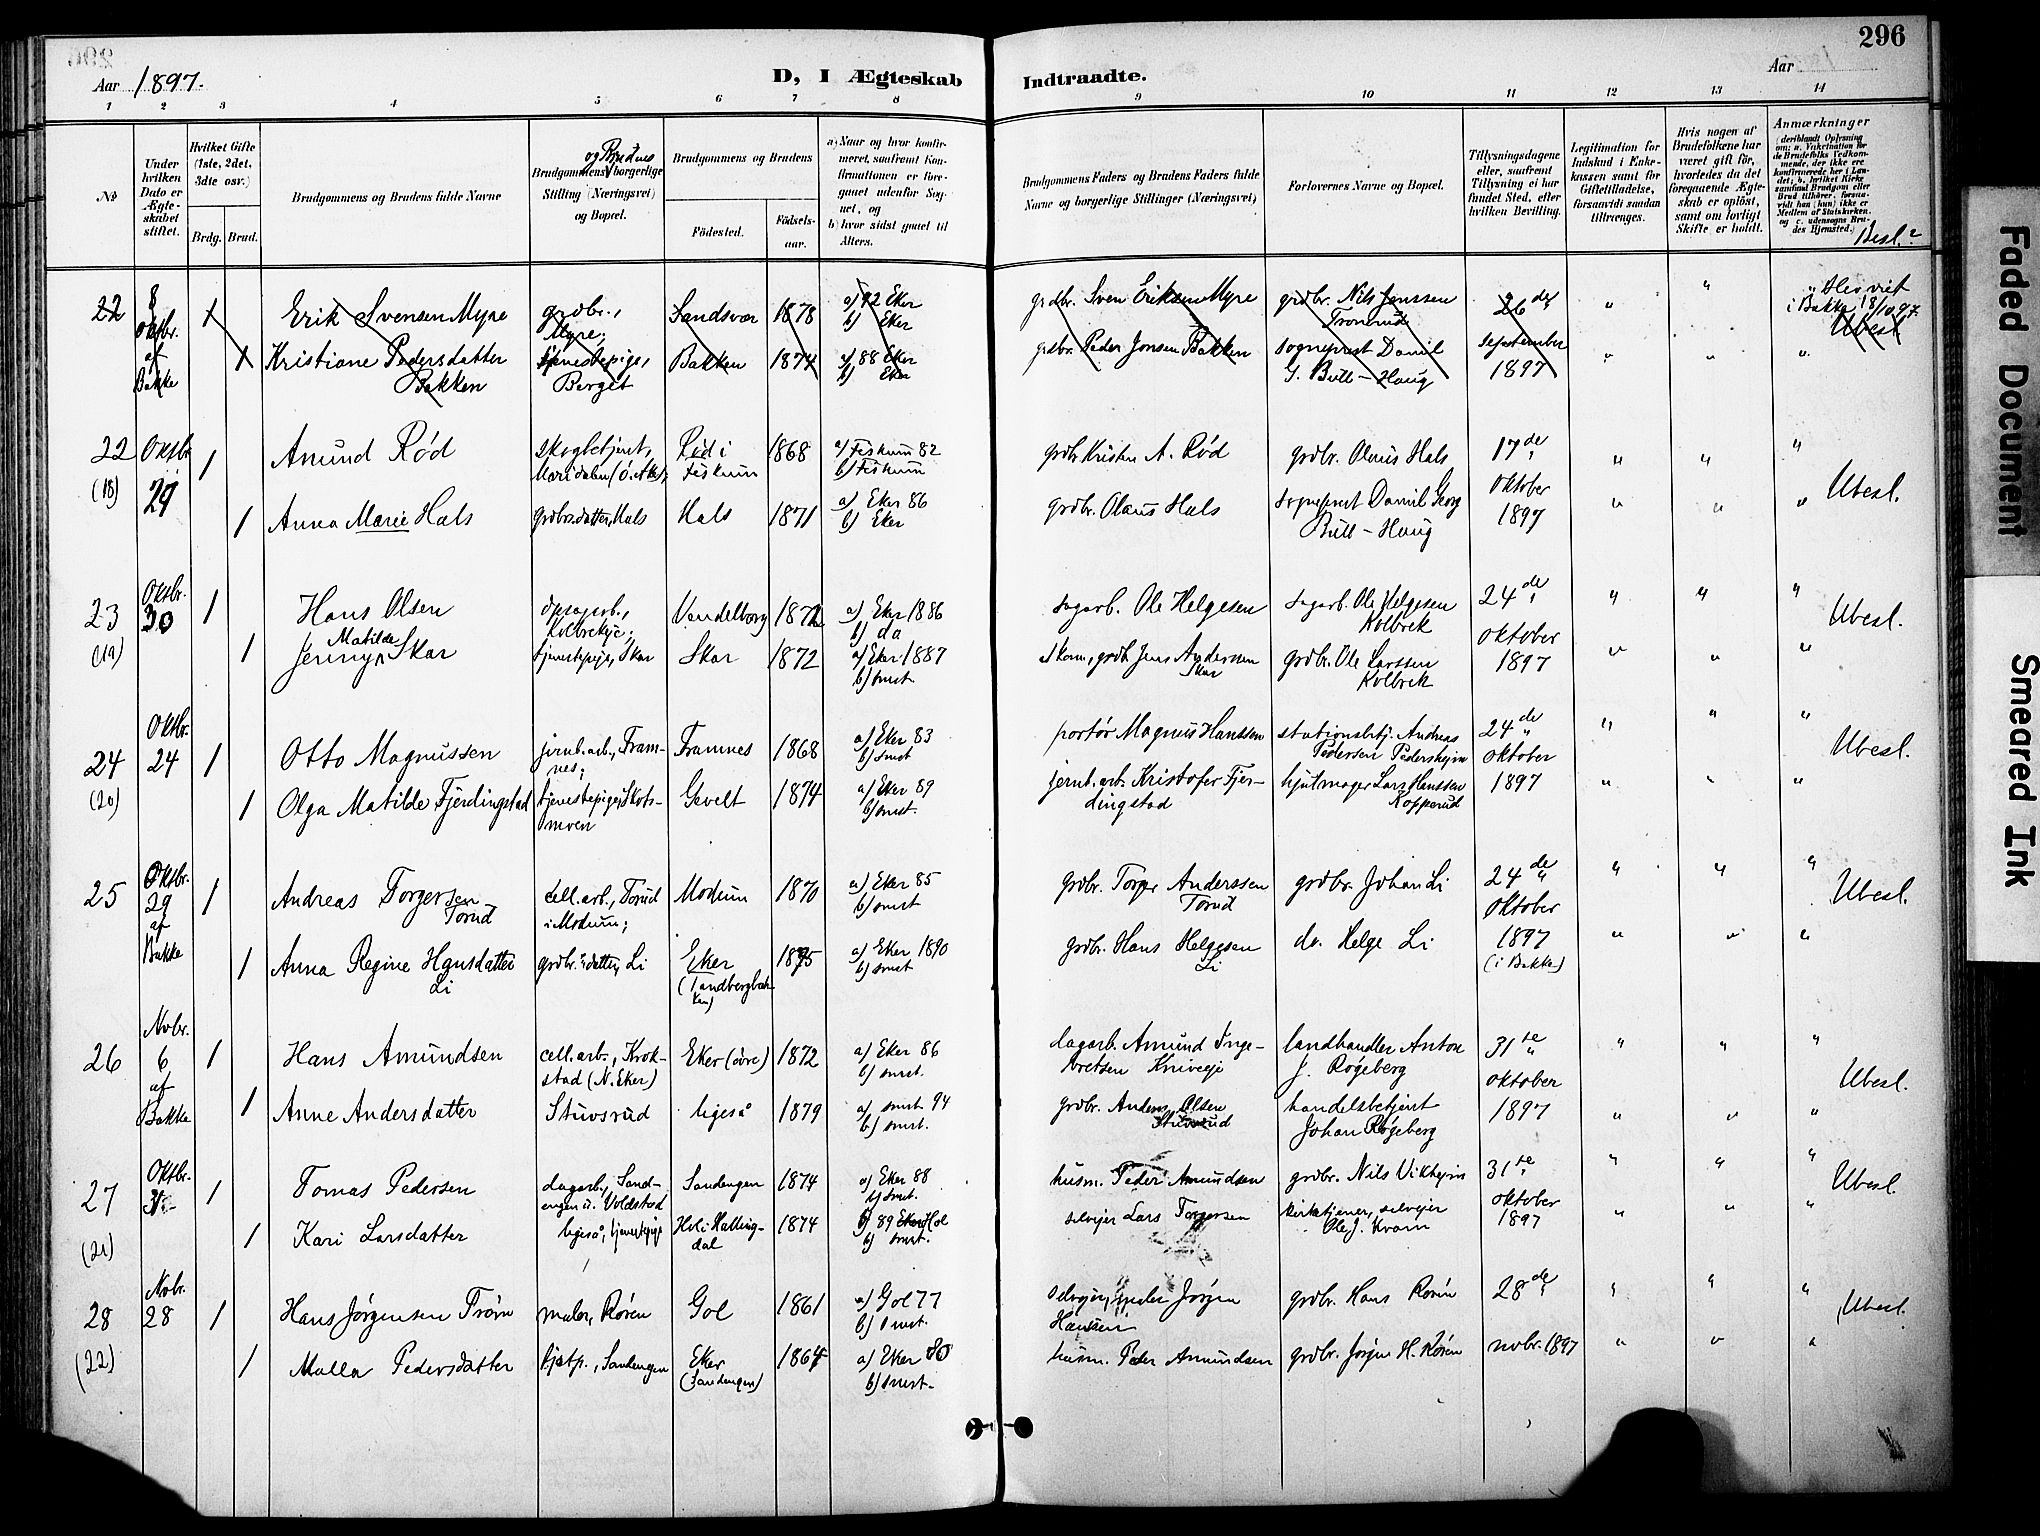 296
Aar 1897.
D, I Ægteskab Indtraadte.
Aar
1 2 3 4 5 6 7 8 9 10 11 12 13 14
No
Under hvilken Dato er Ægteskabet stiftet.
Hvilket Gifte (1ste, 2det, 3die osv.)
Brdg. Brud.
Brudgommens og Brudens fulde Navne
Brudgommens og Brudens borgerlige Stilling (Næringsvei) og Bopæl.
Brudgommens og Brudens
Födested.
Födselsaar.
a) Naar og hvor konfirmeret, saafremt Konfirmationen er foregaaet udenfor Sognet, og
b) hvor sidst gaaet til Alters.
Brudgommens Faders og Brudens Faders fulde Navne og borgerlige Stillinger (Næringsvei)
Forlovernes Navne og Bopæl.
Tillysningsdagene eller, saafremt Tillysning ei har fundet Sted, efter hvilken Bevilling.
Legitimation for Indskud i Enkekassen samt for Giftetilladelse, forsaavidt saadan tiltrænges.
Hvis nogen af Brudefolkene har været gift før, hvorledes da det foregaaende Ægteskab er oplöst, samt om lovligt Skifte er holdt.
Anmærkninger
Besl.?
22 8 Oktbr. af Bakke 1 Erik Svensen Myre grdbr., Myre; Sandsvær 1878 a) 92 Eker b) Eker grdbr. Sven Eriksen Myre grdbr. Nils Jenssen Tronrud 26de september 1897 " " " Blev viet i Bakke 18/10 97. Ubesl.
1 Kristiane Pedersdatter Bakken tjenestepige, Berget Bakken 1874 a) 88 Eker b) Eker grdbr. Peder Jonsen Bakken sogneprest Daniel G. Bull-Haug " " "
22 (18) Oktbr. 29 1 Amund Rød skogbetjent, Maridalen (ö. Aker); Rød i Fiskum 1868 a) Fiskum 82 b) Fiskum grdbr. Kristen A. Rød grdbr. Olaus Hals 17de oktober 1897 " " " Ubesl.
1 Anna Marie Hals grdbr.datter, Hals Hals 1871 a) Eker 86 b) Eker grdbr. Olaus Hals sogneprest Daniel Georg Bull-Haug " " "
23 (19) Oktbr. 30 1 Hans Olsen dgsagarb., Kolbrekeje; Vendelborg 1872 a) Eker 1886 b) da sagarb. Ole Helgesen sagarb. Ole Helgesen Kolbrek 24de oktober 1897 " " " Ubesl.
1 Jenny Matilde Skar tjenestepige, Skar Skar 1872 a) Eker 1887 b) smst grdb. Jens Anderssen Skar grdbr. Ole Larssen Kolbrek " " "
24 (20) Oktbr. 24 1 Otto Magnussen jernb.arb., Framnes; Framnes 1868 a) Eker 83 b) smst portør Magnus Hanssen stationsbtj. Andreas Pedersen Pedershejm 24de oktober 1897 " " " Ubesl.
1 Olga Matilde Fjerdingstad tjenestepige, Skotsmoen Gevelt 1874 a) Eker 89 b) smst. jernb.arb. Kristofer Fjerdingstad hjulmager Lars Hanssen Kopperud " " "
25 Oktbr. 29 af Bakke 1 Andreas Torgersen Torud cell.arb., Torud i Modum; Modum 1870 a) Eker 85 b) smst grdbr. Torger Anderssen Torud grdbr. Johan Li 24de oktober 1897 (i Bakke) " " " Ubesl.
1 Anna Regine Hansdatter Li grdbr.s datter, Li Eker (Tandbergbakken) 1875 a) Eker 1890 b) smst grdbr. Hans Helgesen Li do. Helge Li " " "
26 Nvbr. 6 af Bakke 1 Hans Amundsen cell.arb., Krokstad (N. Eker) Eker (övre) 1872 a) Eker 86 b) smst. dagarb. Amund Ingebretsen Kniveeje landhandler Anton J. Røgeberg 31te oktober 1897 " " " Ubesl.
1 Anne Andersdatter Stuvsrud ligeså 1879 a) smst 94 b) smst. grdbr. Anders Olsen Stuvsrud handelsbetjent Johan Røgeberg " "
27 (21) Oktbr. 31 1 Tomas Pedersen dagarb., Sandengen u. Voldstad Sandengen 1874 a) Eker 88 b) smst. husm. Peder Amundsen grdbr. Nils Vikhejm 31te oktober 1897 " " " Ubesl.
1 Kari Larsdatter ligeså, tjenestepige Hol i Hallingdal 1874 a) 89 Hol b) smst. selvejer Lars Torgersen kirketjener, selvejer Ole J. Kvam " " "
28 (22) Nvbr. 28 1 Hans Jørgensen Trøim maler, Røren Gol 1861 a) Gol 77 b) smst. selvejer, Jørgen Hanssen grdbr. Hans Røren 28de novbr. 1897 " " " Ubesl.
1 Malla Pedersdatter tjstp., Sandengen Eker (Sandengen) 1864 a) Eker 80 b) smst. husm. Peder Amundsen grdbr. Jørgen H. Røren " " "
Faded Document
Smeared Ink